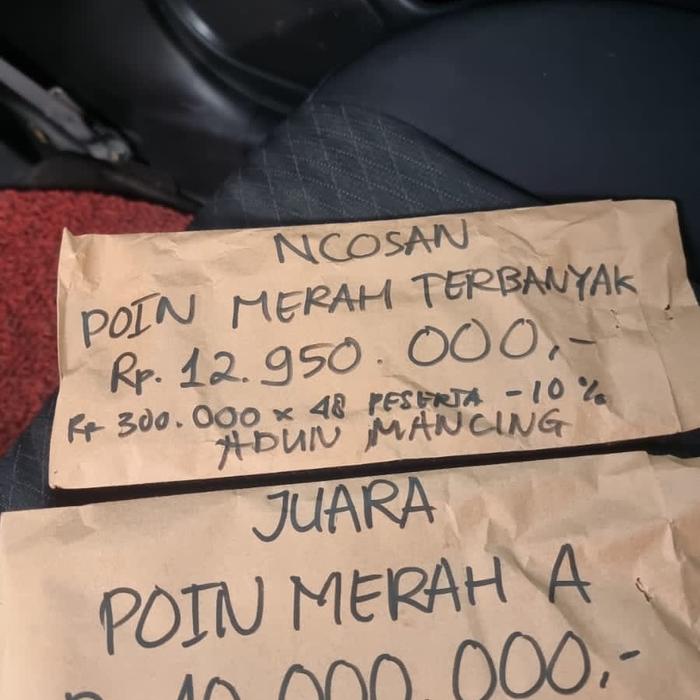 NCOSAN
POIN MERAH TERBANYAK
Rp. 12.950.000,-
Rp 300.000 x 48 PESERTA -10%
ADUN MANCING
JUARA
POIN MERAH A
Rp. 10.000.000,-